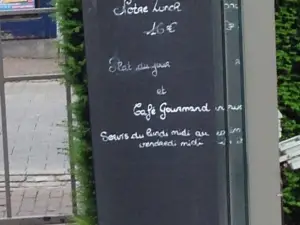 Notre Lunch
16€
Plat du jour
et
Café Gourmand
Servis du lundi midi au
vendredi midi